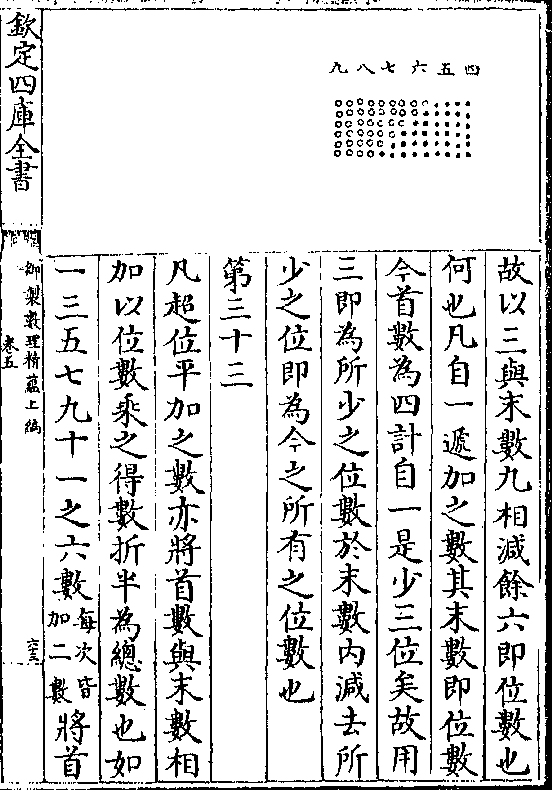 四五六七八九
故以三與末數九相減餘六即位數也
何也凡自一遞加之數其末數即位數
今首數為四計自一是少三位矣故用
三即為所少之位數於末數内減去所
少之位即為今之所有之位數也
第三十三
凡超位平加之數亦將首數與末數相
加以位數乘之得數折半為總數也如
一三五七九十一之六數每次皆加二數將首
欽定四庫全書
御製數理精蘊上編
卷五
六三